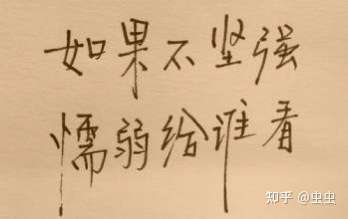 如果不坚强
懦弱给谁看
知乎 @虫虫